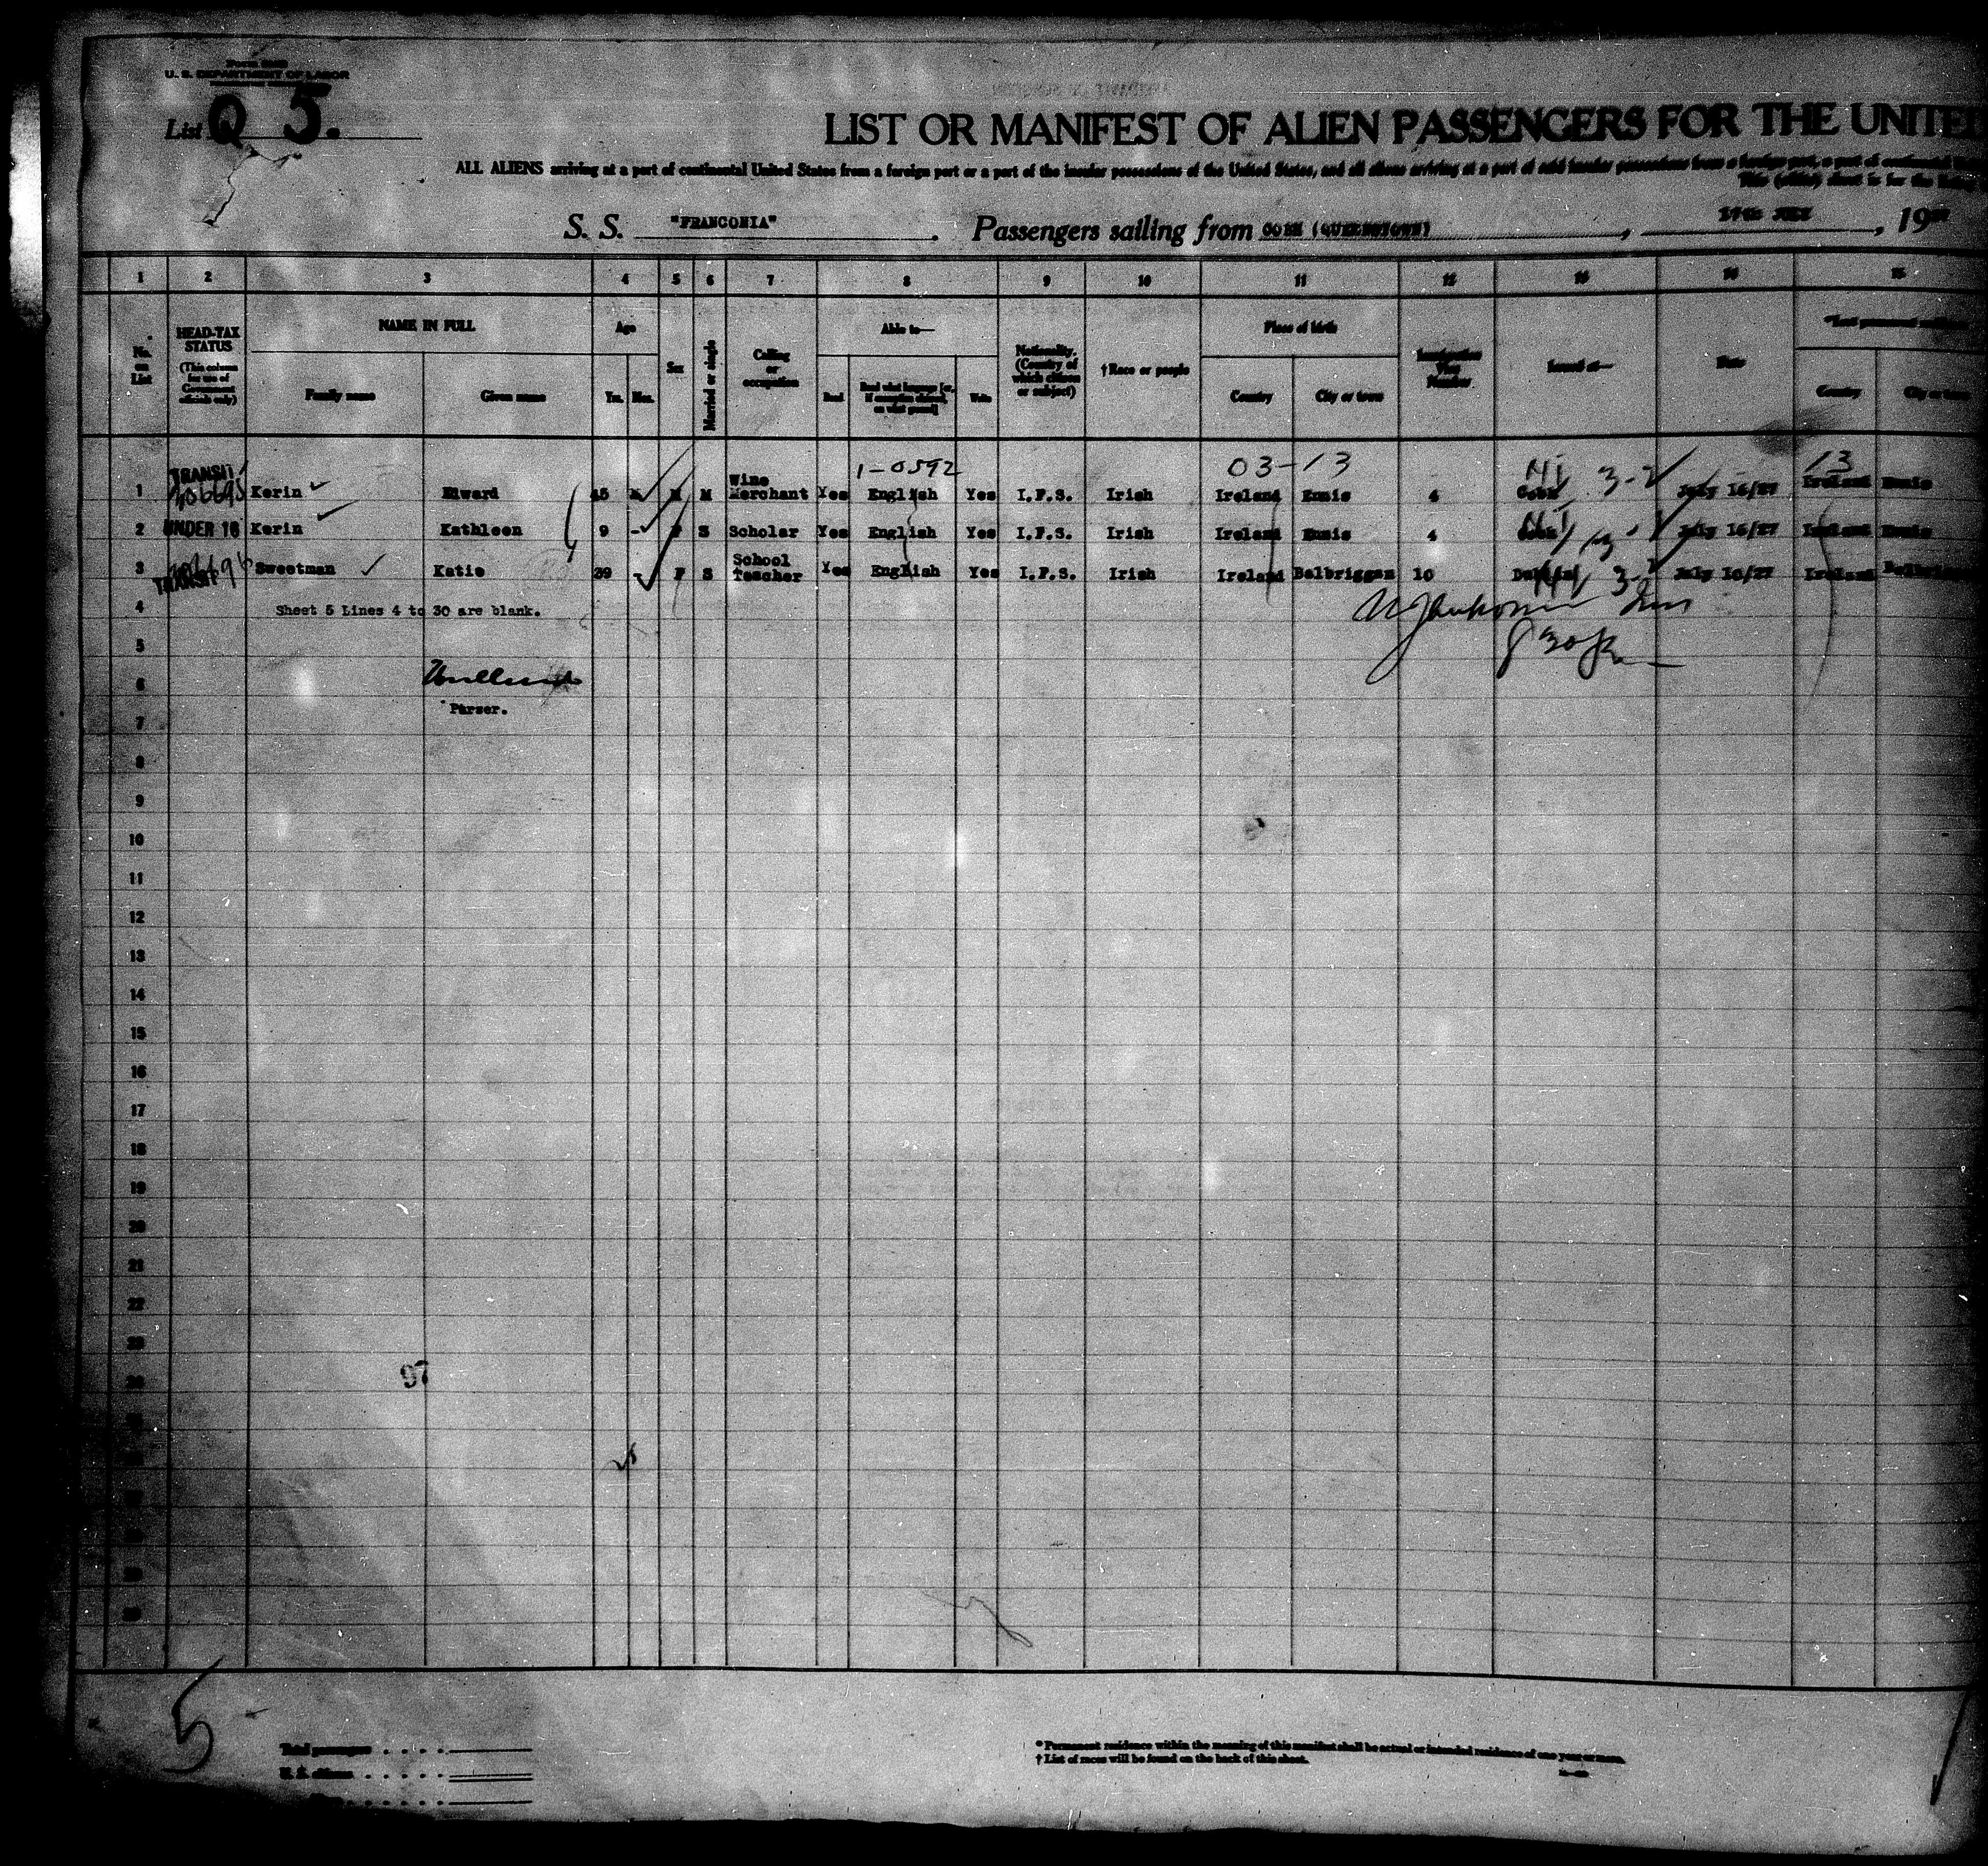 U. S. DEPARTMENT OF LABOR
List Q 5.
LIST OR MANIFEST OF ALIEN PASSENGERS FOR THE UNITED
ALL ALIENS arriving at a port of continental United States from a foreign port or a port of the insular possessions of the United States, and all aliens arriving at a port of said insular possessions from a foreign port, a port of continental
S. S. "FRANCONIA". Passengers sailing from COBH (QUEENSTOWN), 17th JULY, 19
1 2 3 4 5 6 7 8 9 10 11 12 13 14 15
No. on List
HEAD-TAX STATUS (This column for use of Government officials only)
NAME IN FULL
Family name Given name
Age
Yrs. Mos.
Sex
Married or single
Calling or occupation
Able to—
Read Read what language [or, if exemption claimed, on what ground] Write
Nationality. (Country of which citizen or subject)
†Race or people
Place of birth
Country City or town
Immigration Visa Number
Issued at—
Date
*Last permanent
Country City or town
1-0592 03-13 13
1 TRANSIT Kerin Edward 45 M M Wine Merchant Yes English Yes I.F.S. Irish Ireland Ennis 4 Cobh 3-2 July 16/27 Ireland Ennis
2 UNDER 16 Kerin Kathleen 9 - F S Scholar Yes English Yes I.F.S. Irish Ireland Ennis 4 Cobh July 16/27 Ireland Ennis
3 TRANSIT Sweetman Katie 39 - F S School Teacher Yes English Yes I.F.S. Irish Ireland Balbriggan 10 Dublin 3-2 July 16/27 Ireland
4 Sheet 5 Lines 4 to 30 are blank.
5
6
7 Purser.
8
9
10
11
12
13
14
15
16
17
18
19
20
21
22
23
97
5
Total passengers
U. S. citizens
* Permanent residence within the meaning of this manifest shall be actual or intended residence of one year or more.
† List of races will be found on the back of this sheet.